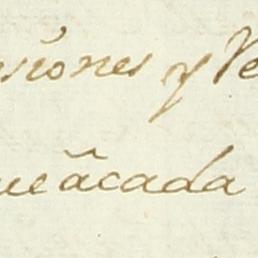 siones y Ve
ue ã cada